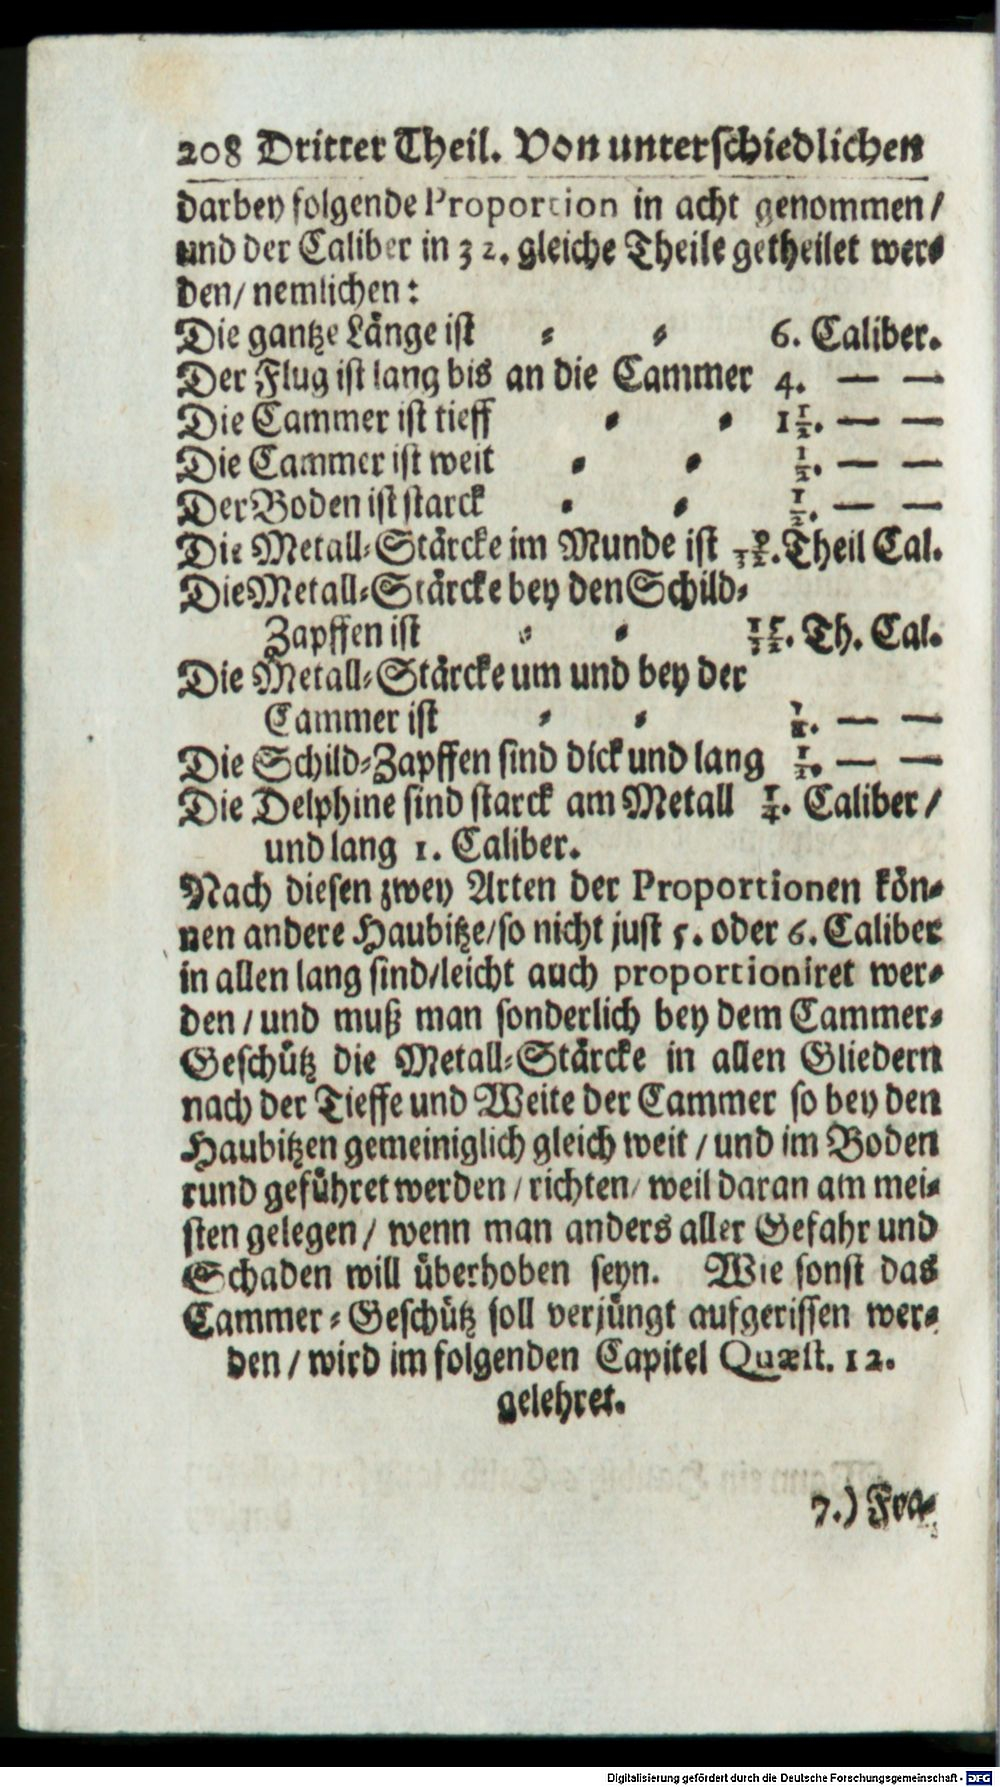 208 Dritter Theil. Von unterschiedlichen
darbey folgende Proportion in acht genommen/
und der Caliber in 32. gleiche Theile getheilet wer⸗
den/ nemlichen:
Die gantze Länge ist ⸗ ⸗ 6. Caliber.
Der Flug ist lang bis an die Cammer 4. — —
Die Cammer ist tieff ⸗ ⸗ 1½. — —
Die Cammer ist weit ⸗ ⸗ ½. — —
Der Boden ist starck ⸗ ⸗ ½. — —
Die Metall⸗Stärcke im Munde ist Theil Cal.
Die Metall⸗Stärcke bey den Schild⸗
Zapffen ist ⸗ ⸗ 15/32. Th. Cal.
Die Metall⸗Stärcke um und bey der
Cammer ist ⸗ ⸗ — —
Die Schild⸗Zapffen sind dick und lang ½. — —
Die Delphine sind starck am Metall ¼. Caliber/
und lang 1. Caliber.
Nach diesen zwey Arten der Proportionen kön⸗
nen andere Haubitze/so nicht just 5. oder 6. Caliber
in allen lang sind/leicht auch proportioniret wer⸗
den/ und muß man sonderlich bey dem Cammer⸗
Geschütz die Metall⸗Stärcke in allen Gliedern
nach der Tieffe und Weite der Cammer so bey den
Haubitzen gemeiniglich gleich weit/ und im Boden
rund geführet werden/ richten/ weil daran am mei⸗
sten gelegen/ wenn man anders aller Gefahr und
Schaden will überhoben seyn. Wie sonst das
Cammer⸗Geschütz soll verjüngt aufgerissen wer⸗
den/ wird im folgenden Capitel Quæst. 12.
gelehret.
7.) Fra⸗
Digitalisierung gefördert durch die Deutsche Forschungsgemeinschaft - DFG